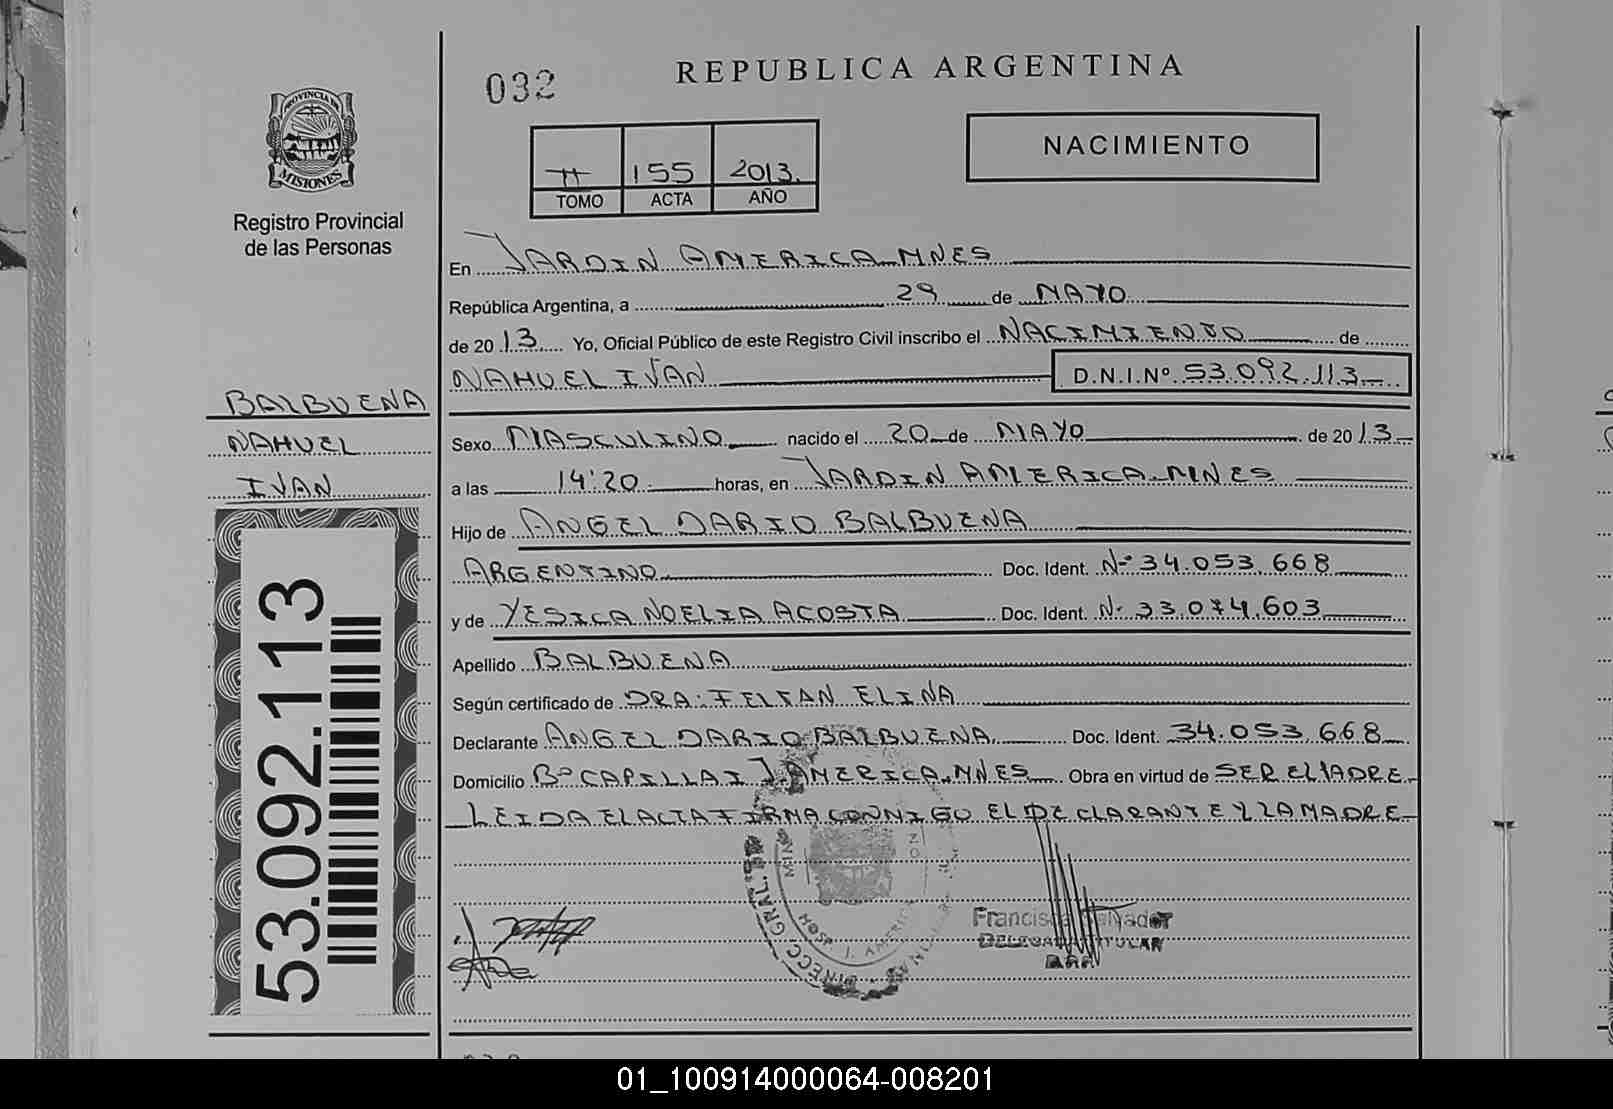 032
REPUBLICA ARGENTINA
NACIMIENTO
PROVINCIA DE
MISIONES
Registro Provincial
de las Personas
II 155 2013.
TOMO ACTA AÑO
En JARDIN AMERICA. MNES
República Argentina, a 29 de MAYO
de 2013 Yo, Oficial Público de este Registro Civil inscribo el NACIMIENTO de
NAHUEL IVAN D.N.I.Nº 53.092.113
BALBUENA
NAHUEL
IVAN
53.092.113
Sexo MASCULINO nacido el 20 de MAYO de 2013
a las 14:20 horas, en JARDIN AMERICA. MNES
Hijo de ANGEL DARIO BALBUENA
ARGENTINO Doc. Ident. Nº 34.053.668
y de YESICA NOELIA ACOSTA Doc. Ident. Nº 33.074.603
Apellido BALBUENA
Según certificado de DRA: ELINA
Declarante ANGEL DARIO BALBUENA Doc. Ident. 34.053.668
Domicilio Bº CAPILLA I J. AMERICA. MNES Obra en virtud de SER EL PADRE
LEIDA EL ACTA FIRMA CONMIGO EL DECLARANTE Y LA MADRE
DIRECC GRAL.
HOSP. J. AMERICA
Francisca Salvador
DELEGADA TITULAR
01_100914000064-008201